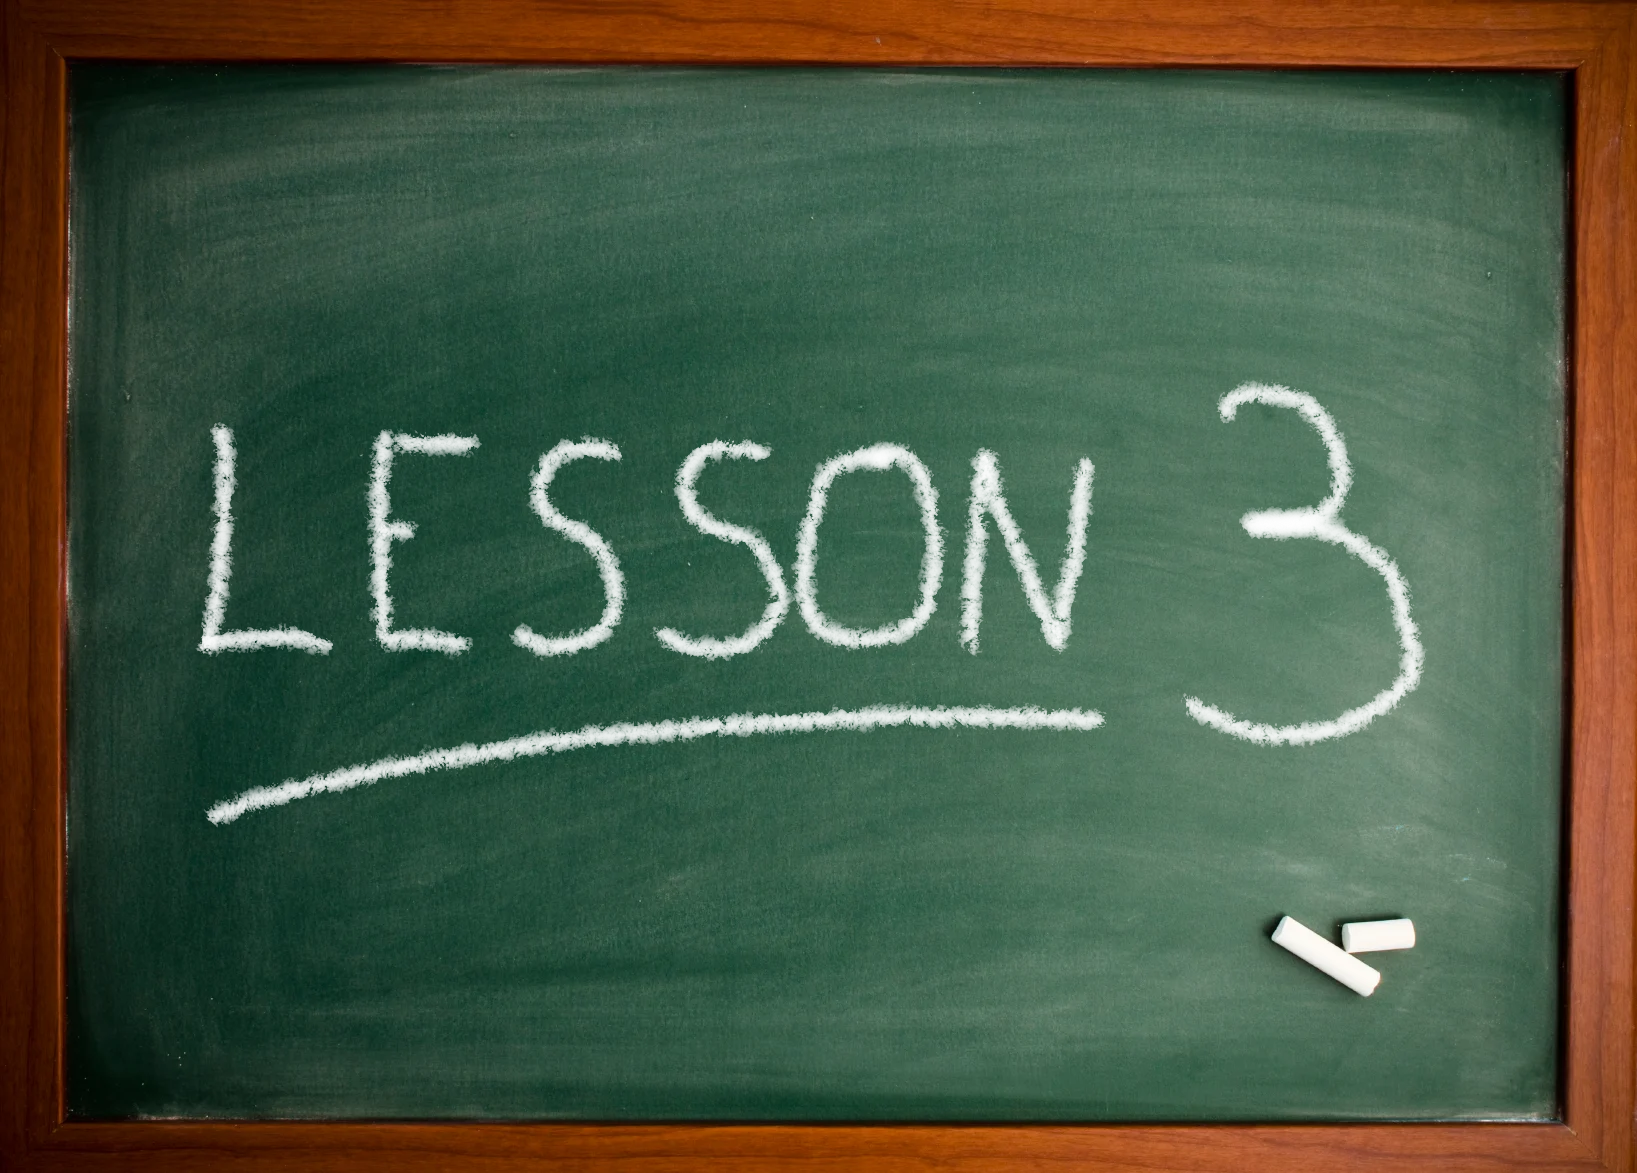 LESSON 3